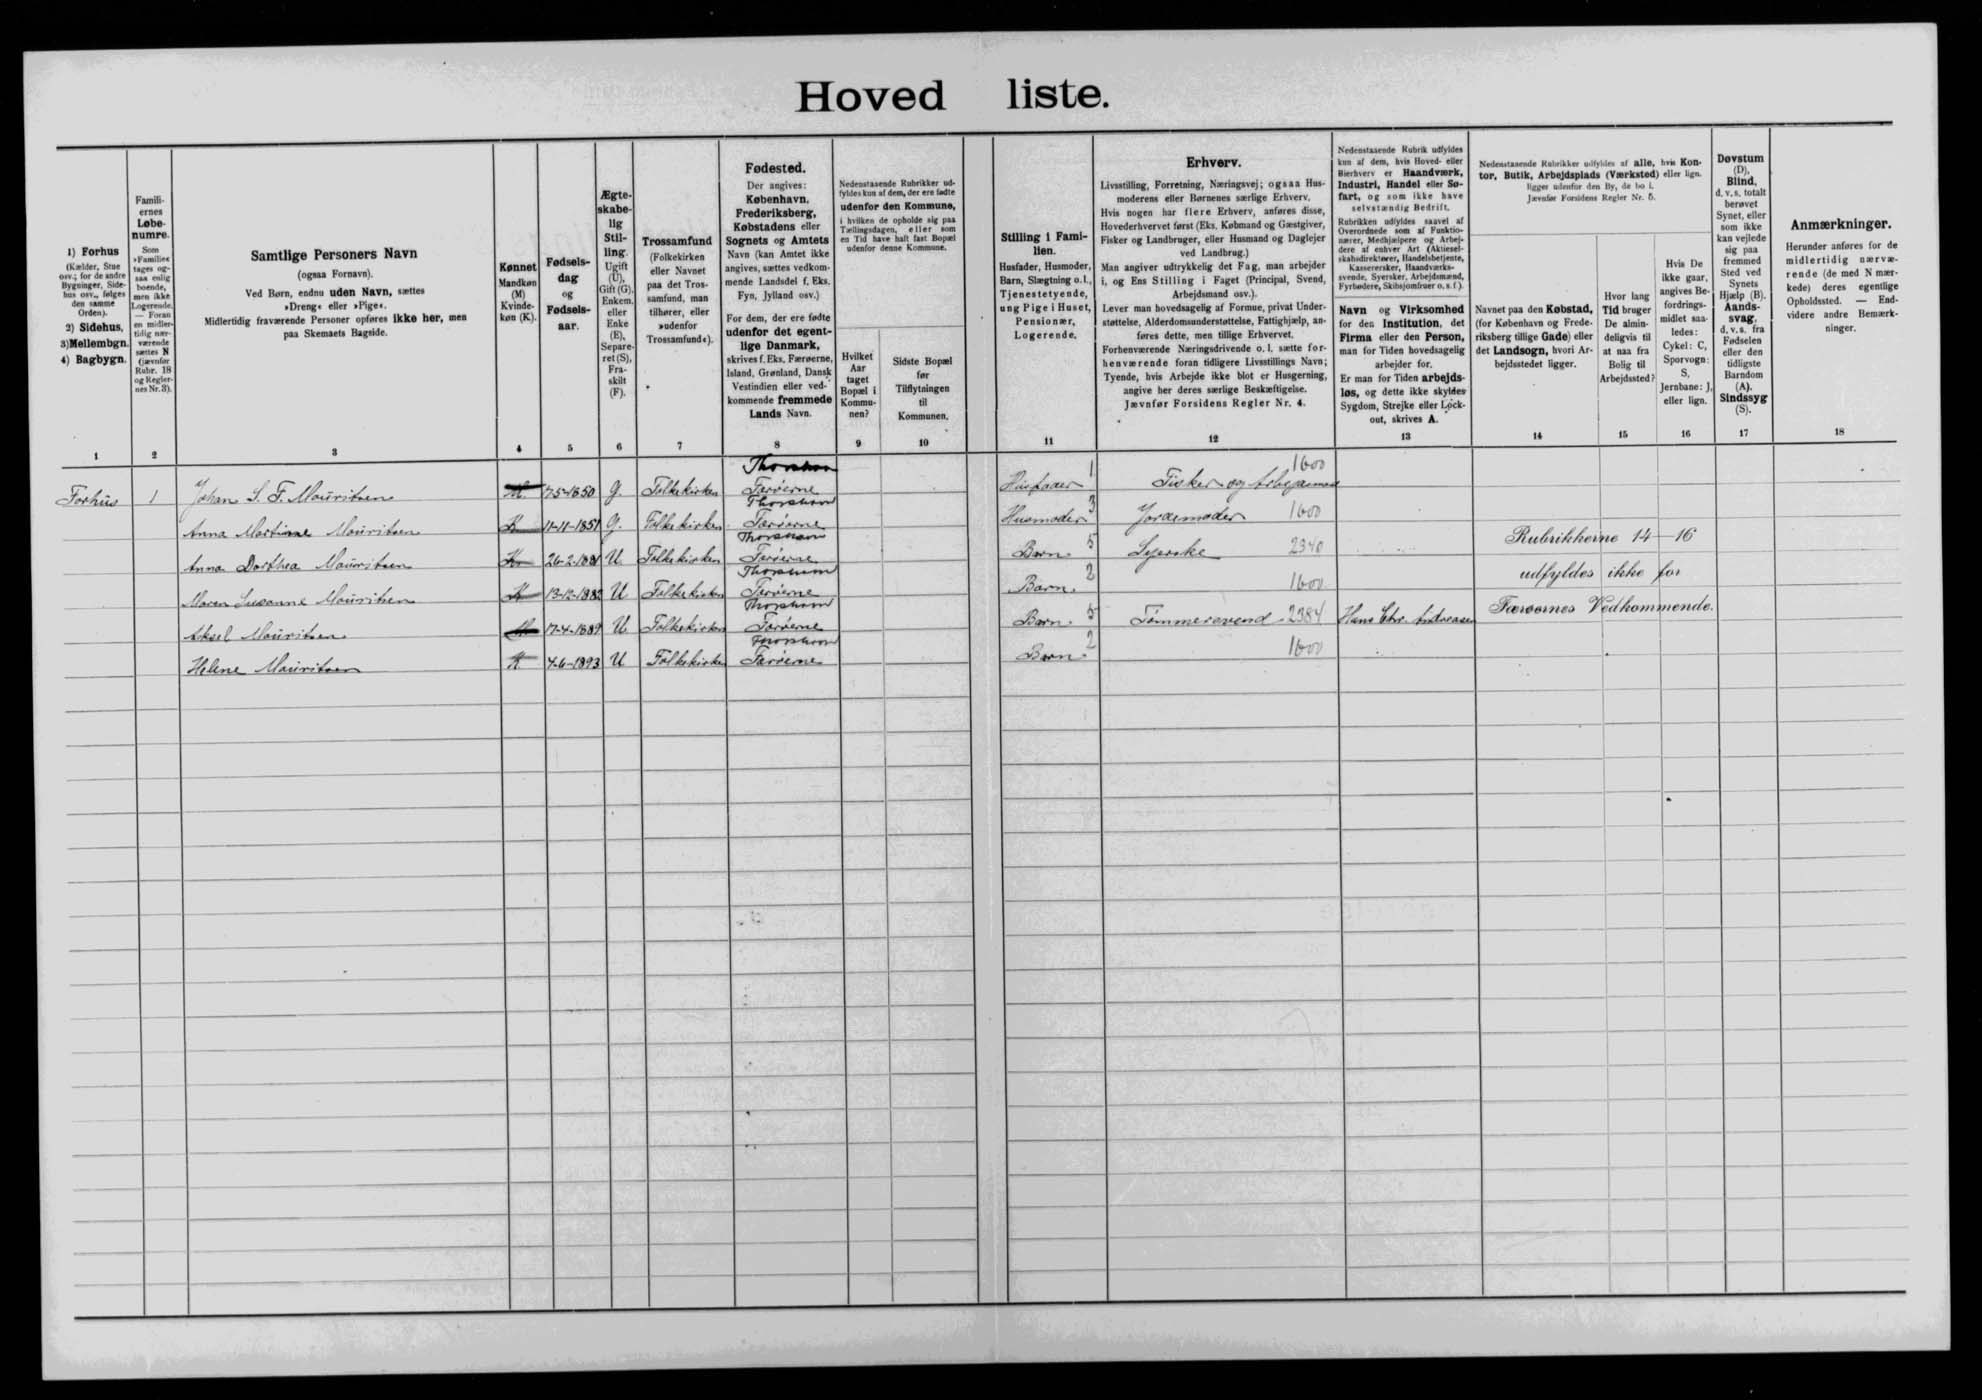 Hoved liste.
1) Forhus
(Kælder, Stue
osv.; for de andre
Bygninger, Side-
hus osv., følges
den samme
Orden).
2) Sidehus,
3) Mellembgn.
4) Bagbygn.
1
Famili-
ernes
Løbe-
numre.
Som
»Familie«
tages og-
saa enlig
boende,
men ikke
Logerende.
— Foran
en midler-
tidig nær-
værende
sættes N
(jævnfør
Rubr. 18
og Regler-
nes Nr. 3).
2
Samtlige Personers Navn
(ogsaa Fornavn).
Ved Børn, endnu uden Navn, sættes
»Dreng« eller »Pige«.
Midlertidig fraværende Personer opføres ikke her, men
paa Skemaets Bagside.
3
Kønnet
Mandkøn
(M)
Kvinde-
køn (K).
4
Fødsels-
dag
og
Fødsels-
aar.
5
Ægte-
skabe-
lig
Stil-
ling.
Ugift
(U),
Gift (G),
Enkem.
eller
Enke
(E),
Separe-
ret (S),
Fra-
skilt
(F).
6
Trossamfund
(Folkekirken
eller Navnet
paa det Tros-
samfund, man
tilhører, eller
»udenfor
Trossamfund«).
7
Fødested.
Der angives:
København,
Frederiksberg,
Købstadens eller
Sognets og Amtets
Navn (kan Amtet ikke
angives, sættes vedkom-
mende Landsdel f. Eks.
Fyn, Jylland osv.)
For dem, der ere fødte
udenfor det egent-
lige Danmark,
skrives f. Eks. Færøerne,
Island, Grønland, Dansk
Vestindien eller ved-
kommende fremmede
Lands Navn.
8
Nedenstaaende Rubrikker ud-
fyldes kun af dem, der ere fødte
udenfor den Kommune,
i hvilken de opholde sig paa
Tællingsdagen, eller som
en Tid have haft fast Bopæl
udenfor denne Kommune.
Hvilket
Aar
taget
Bopæl i
Kommu-
nen?
9
Sidste Bopæl
før
Tilflytningen
til
Kommunen.
10
Stilling i Fami-
lien.
Husfader, Husmoder,
Barn, Slægtning o.l.,
Tjenestetyende,
ung Pige i Huset,
Pensionær,
Logerende.
11
Erhverv.
Livsstilling, Forretning, Næringsvej; ogsaa Hus-
moderens eller Børnenes særlige Erhverv.
Hvis nogen har flere Erhverv, anføres disse,
Hovederhvervet først (Eks. Købmand og Gæstgiver,
Fisker og Landbruger, eller Husmand og Daglejer
ved Landbrug.)
Man angiver udtrykkelig det Fag, man arbejder
i, og Ens Stilling i Faget (Principal, Svend,
Arbejdsmand osv.).
Lever man hovedsagelig af Formue, privat Under-
støttelse, Alderdomsunderstøttelse, Fattighjælp, an-
føres dette, men tillige Erhvervet.
Forhenværende Næringsdrivende o. l. sætte for-
henværende foran tidligere Livsstillings Navn;
Tyende, hvis Arbejde ikke blot er Husgerning,
angive her deres særlige Beskæftigelse.
Jævnfør Forsidens Regler Nr. 4.
12
Nedenstaaende Rubrik udfyldes
kun af dem, hvis Hoved- eller
Bierhverv er Haandværk,
Industri, Handel eller Sø-
fart, og som ikke have
selvstændig Bedrift.
Rubrikken udfyldes saavel af
Overordnede som af Funktio-
nærer, Medhjælpere og Arbej-
dere af enhver Art (Aktiesel-
skabsdirektører, Handelsbetjente,
Kasserersker, Haandværks-
svende, Syersker, Arbejdsmænd,
Fyrbødere, Skibsjomfruer o. s. f.).
Navn og Virksomhed
for den Institution, det
Firma eller den Person,
man for Tiden hovedsagelig
arbejder for.
Er man for Tiden arbejds-
løs, og dette ikke skyldes
Sygdom, Strejke eller Lock-
out, skrives A.
13
Nedenstaaende Rubrikker udfyldes af alle, hvis Kon-
tor, Butik, Arbejdsplads (Værksted) eller lign.
ligger udenfor den By, de bo i.
Jævnfør Forsidens Regler Nr. 5.
Navnet paa den Købstad,
(for København og Frede-
riksberg tillige Gade) eller
det Landsogn, hvori Ar-
bejdsstedet ligger.
14
Hvor lang
Tid bruger
De almin-
deligvis til
at naa fra
Bolig til
Arbejdssted?
15
Hvis De
ikke gaar,
angives Be-
fordrings-
midlet saa-
ledes:
Cykel: C,
Sporvogn:
S,
Jernbane: J,
eller lign.
16
Døvstum
(D),
Blind,
d. v. s. totalt
berøvet
Synet, eller
som ikke
kan vejlede
sig paa
fremmed
Sted ved
Synets
Hjælp (B).
Aands-
svag,
d. v. s. fra
Fødselen
eller den
tidligste
Barndom
(A).
Sindssyg
(S).
17
Anmærkninger.
Herunder anføres for de
midlertidig nærvæ-
rende (de med N mær-
kede) deres egentlige
Opholdssted. — End-
videre andre Bemærk-
ninger.
18
Forhus 1 Johan S. F. Mouritsen M. 17-5-1850 G. Folkekirken Thorshavn Færøerne Husfader 1 Fisker og Arbejdsmand 1600
Anna Martinne Mouritsen K 11-11-1851 G. Folkekirken Thorshavn Færøerne Husmoder 3 Jordemoder 1600
Anna Dorthea Mouritsen K 26-2-1881 U. Folkekirken Thorshavn Færøerne Barn 5 Syerske 2340 Rubrikkerne 14—16
Maren Susanne Mouritsen K 13-12-1882 U Folkekirken Thorshavn Færøerne Barn. 2 1600 udfyldes ikke for
Aksel Mouritsen M 17-4-1889 U. Folkekirken Thorshavn Færøerne Barn 5 Tømmersvend 2384 Hans Chr. Andreasen Færøernes Vedkommende.
Helene Mouritsen K 4-6-1893 U Folkekirken Thorshavn Færøerne Barn 2 1600